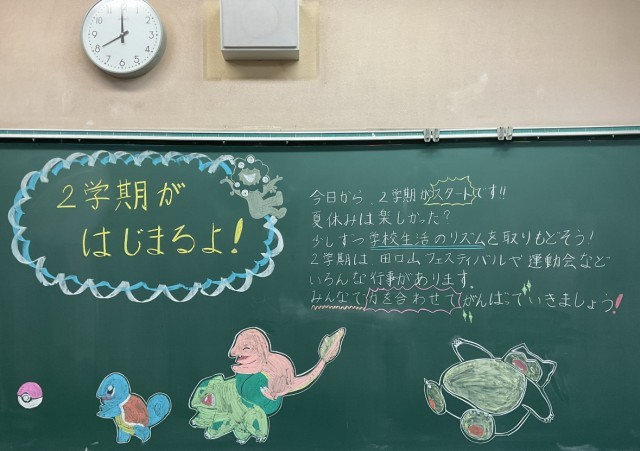 2学期が
はじまるよ!
今日から、2学期がスタートです!!
夏休みは楽しかった?
少しずつ学校生活のリズムを取りもどそう!
2学期は 田口山フェスティバルや運動会など
いろんな行事があります.
みんなで力を合わせてがんばっていきましょう!
12
11
10
9
8
7
6
5
4
3
2
1